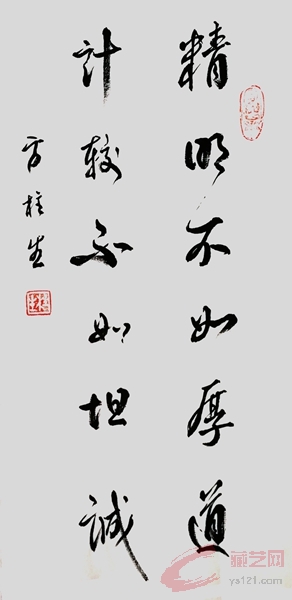 精明不如厚道
计较不如坦诚
藏艺网
ys121.com